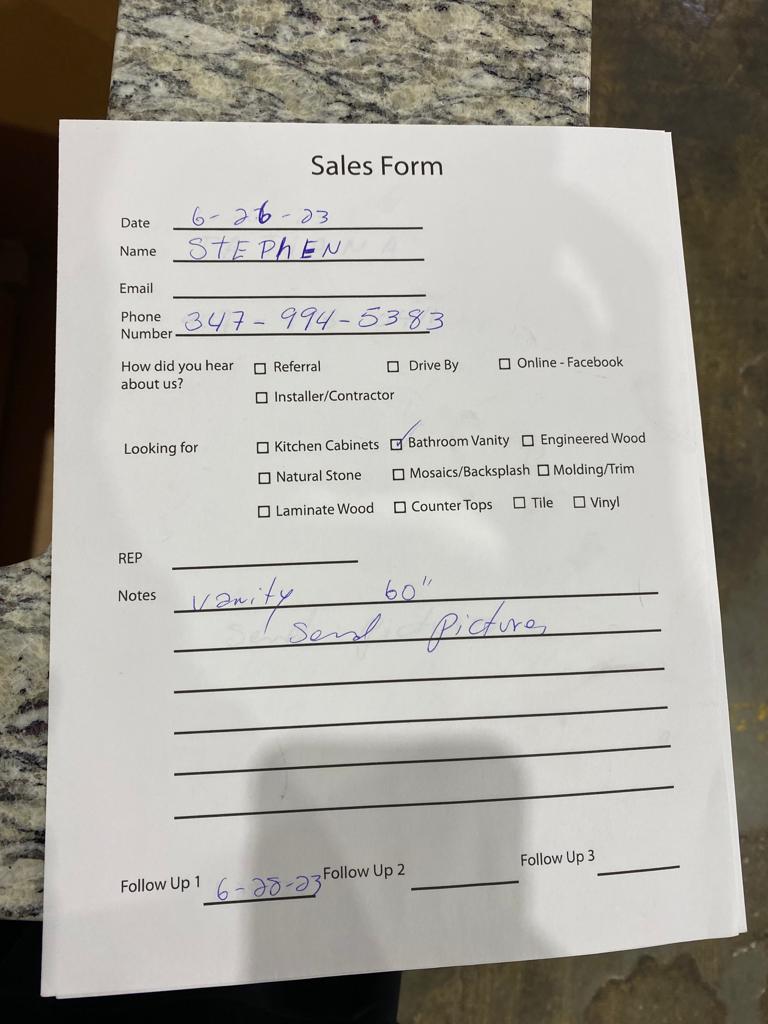 Sales Form
Date 6-26-23
Name STEPhEN
Email
Phone Number 347-994-5383
How did you hear about us? ☐ Referral ☐ Drive By ☐ Online - Facebook
☐ Installer/Contractor
Looking for ☐ Kitchen Cabinets ☑ Bathroom Vanity ☐ Engineered Wood
☐ Natural Stone ☐ Mosaics/Backsplash ☐ Molding/Trim
☐ Laminate Wood ☐ Counter Tops ☐ Tile ☐ Vinyl
REP
Notes Vanity 60"
Send Pictures
Follow Up 1 6-28-23 Follow Up 2 Follow Up 3